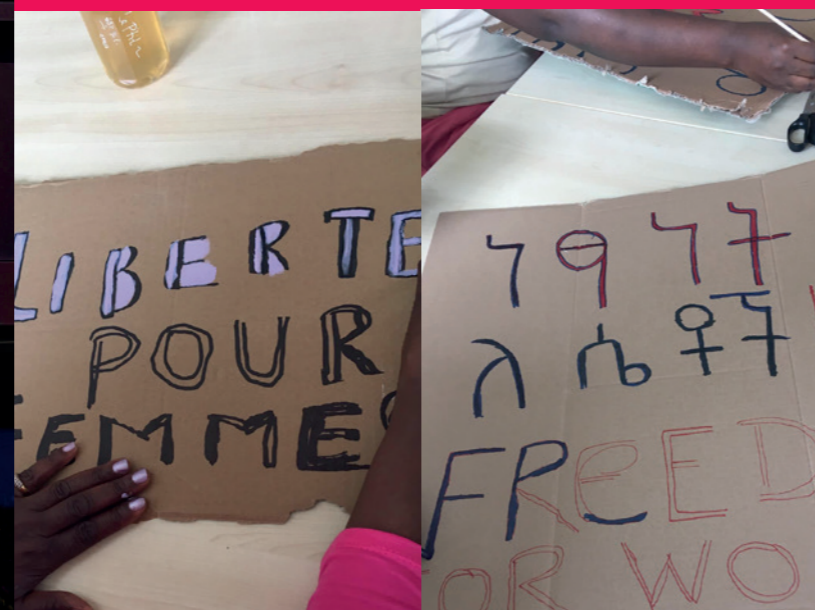 LIBERTE
POUR
FEMMES
ነፃነት
ለሴቶች
FREED
OR WO